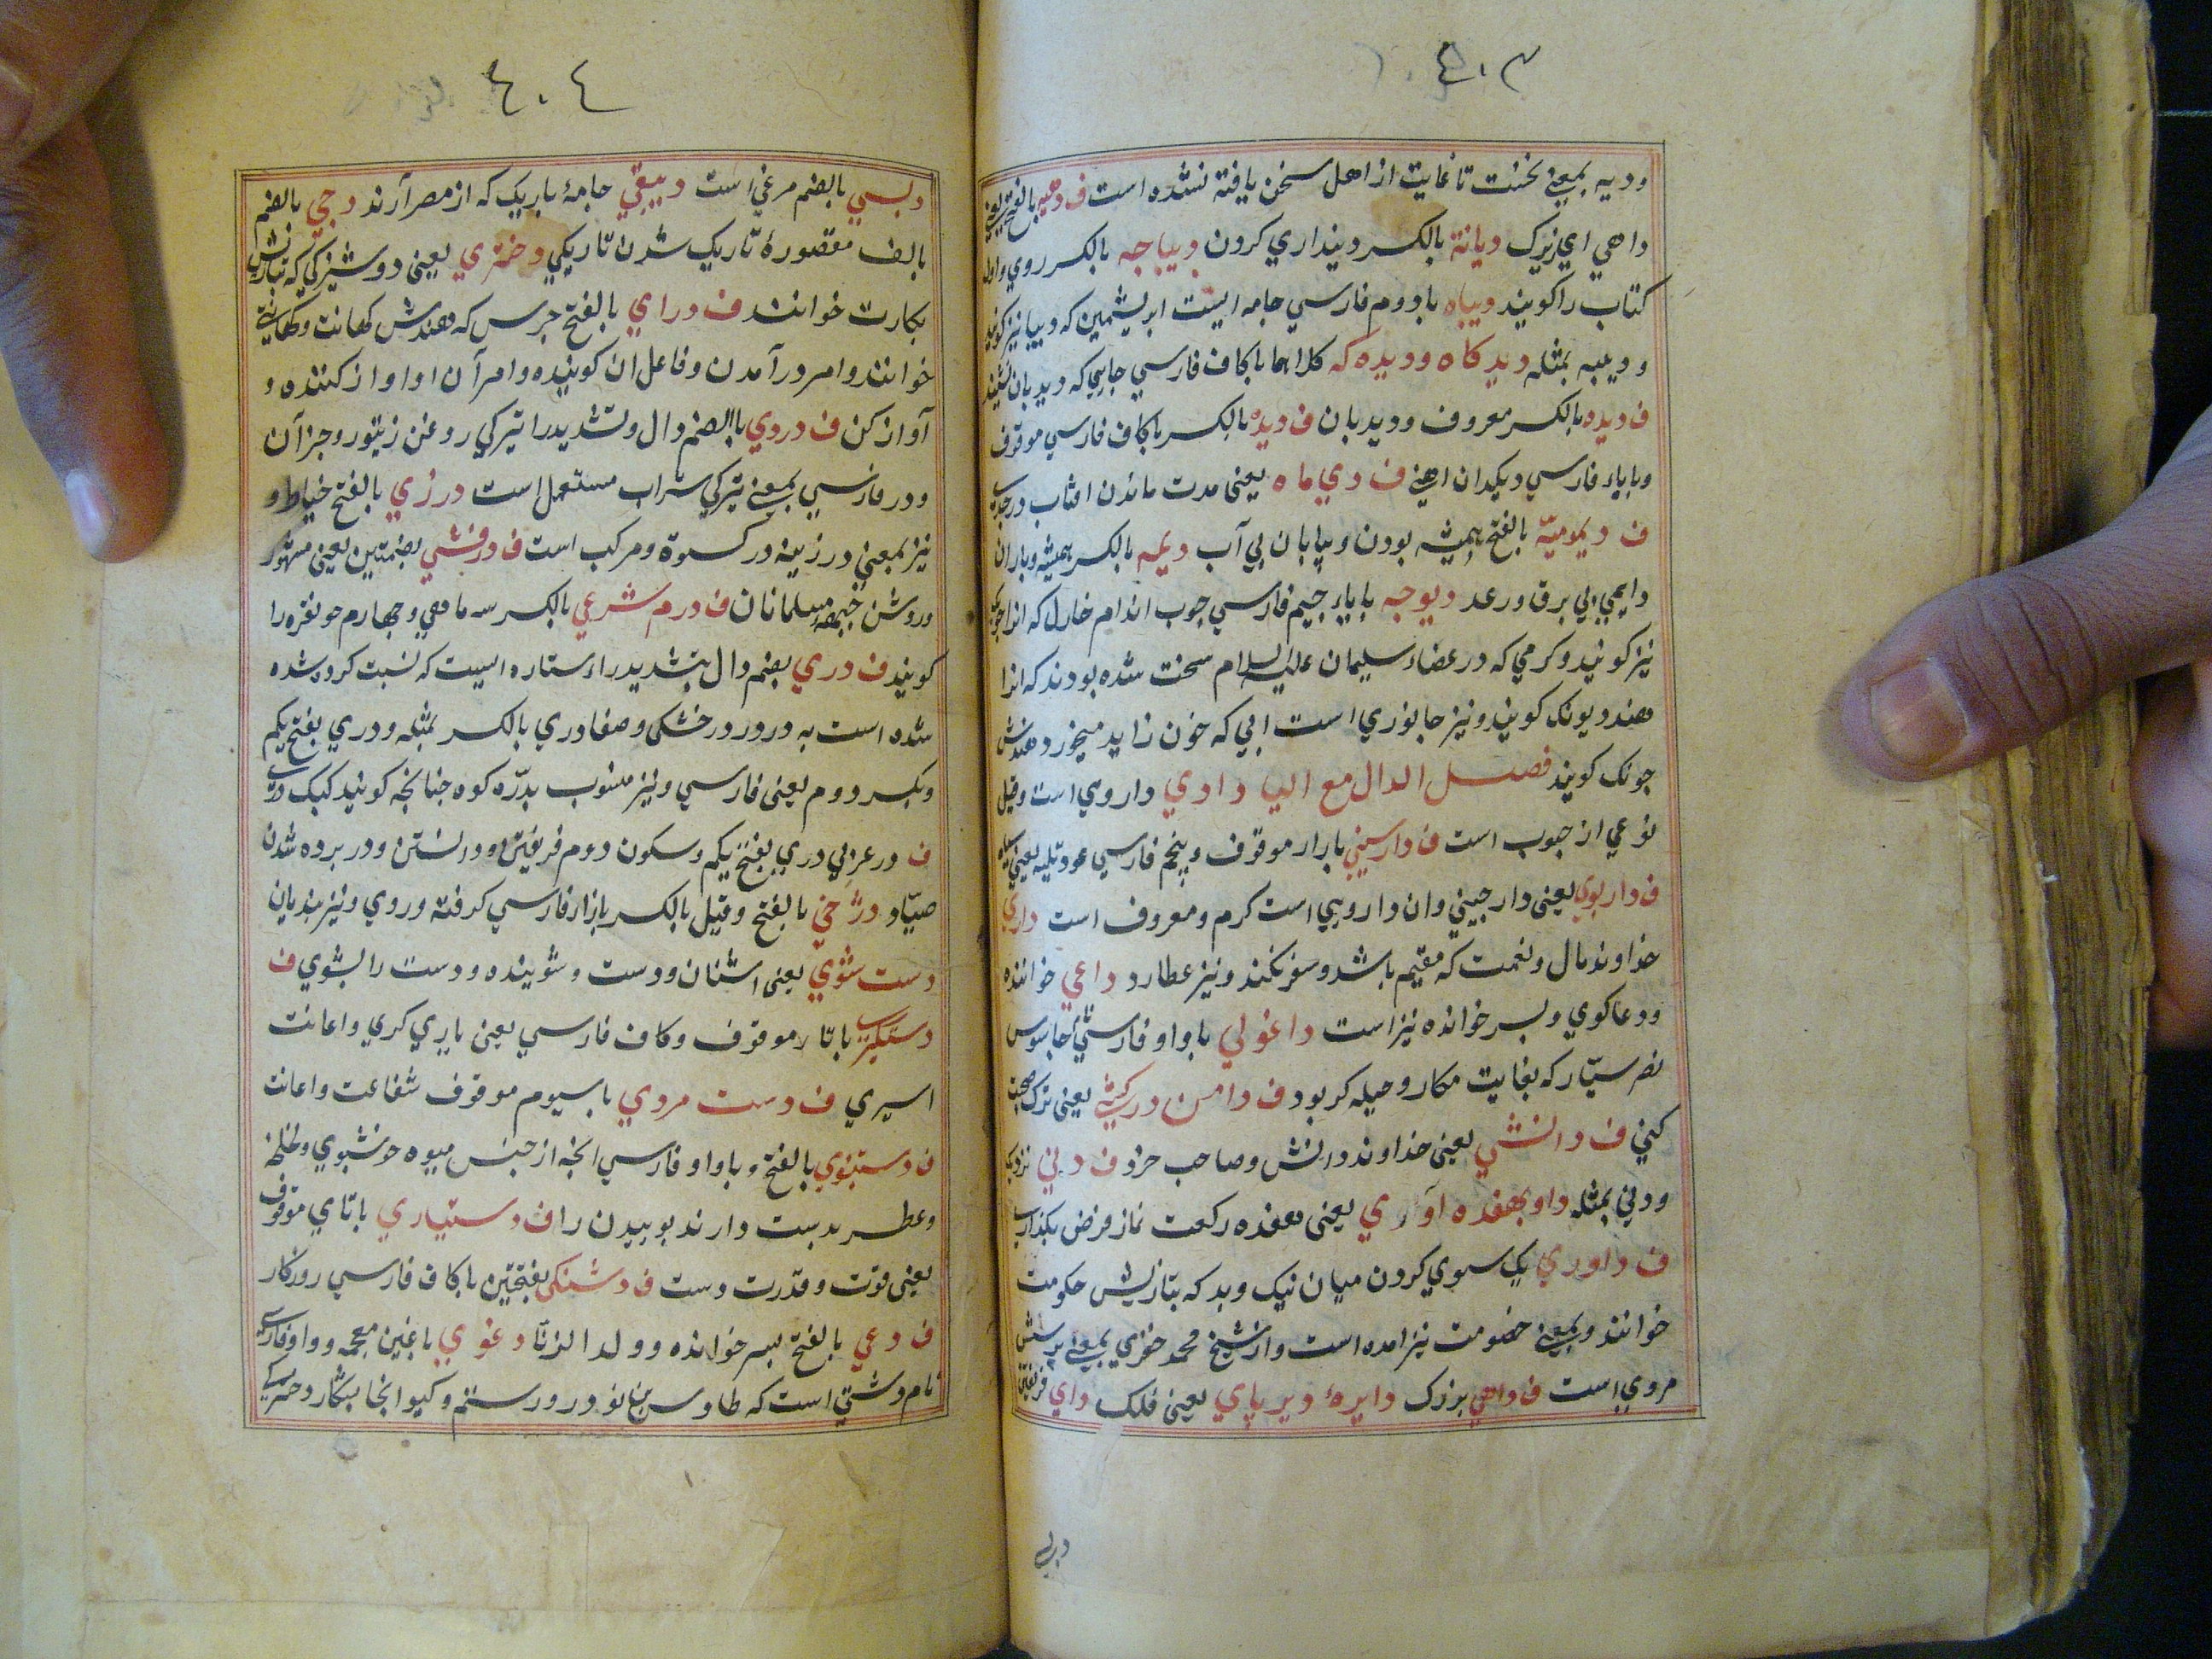 ٤٠٣
ودیه بمعنی نخست تا غایت از اهل سخن یافته نشده است ف دهیه بالفتح
داهی ای زیرک دیانة بالکسر دینداری کردن دیباجه بالکسر روی و اول
کتاب را کویند دیباه با دوم فارسی جامه ایست ابریشمین که دیبا نیز کویند
و دیبه بمثله دیدکاه و دیده که کلاهما با کاف فارسی جایی که دیدبان نشیند
ف دیده بالکسر معروف و دیدبان ف دیک بالکسر با کاف فارسی موقوف
و با یاء فارسی دیکدان اهنی ف دی ماه یعنی مدت ماندن افتاب در جدی
ف دیمومیّة بالفتح همیشه بودن و بیابان بی آب دیمه بالکسر همیشه و باران
دایمی بی برق و رعد دیوجه با یاء و جیم فارسی چوب اندام خارک که انرا
نیز کویند و کرمی که در عصاء سلیمان علیه السلام سخت شده بودند که انرا
هند دیونک کویند و نیز جانوری است ابی که خون زاید میخورد هندش
جونک کویند فصل الدال مع الیا دادی داروی است و قیل
نوعی از حبوب است ف دارسینی با راء موقوف و پنجم فارسی عود
ف داربوی یعنی دارچینی وان دارویی است کرم و معروف است داری
خداوند مال و نعمت که مقیم باشد و سفر نکند و نیز عطارد داعی خواننده
و دعا کوی و پسر خوانده نیز است داغولی با واو فارسی جاسوس
نصر سیّار که بغایت مکار و حیله کر بود ف دامن درکشی یعنی ترک صحبت
کنی ف دانشی یعنی خداوند دانش و صاحب خرد ف دنی نزدیک
و دنی بمثله داو بهفده آوری یعنی هفده رکعت نماز فرض بکذاری
ف داوری یک سوی کردن میان نیک و بد که بتازیش حکومت
خوانند و بمعنی خصومت نیز امده است و از شیخ محمد خضری بمعنی پرسش
مروی است ف داهی بزرک دایرهٔ دیرپای یعنی فلک دای
دبسی
٤٠٤
دبسی بالضم مرغی است دیبقی جامهٔ باریک که از مصر آرند دجی بالضم
بالف مقصورهٔ تاریک شدن تاریکی دختری یعنی دوشیزکی که بتازیش
بکارت خوانند ف درای بالفتح جرس که هندش کهانت و کهانتی
خوانند و امر درآمدن و فاعل ان کوینده و امر آن او اواز کننده و
آواز کن ف دردی بالضم دال و تشدید را تیرکی روغن زیتون و جز آن
و در فارسی بمعنی تیرکی شراب مستعمل است درزی بالفتح خیاط و
نیز بمعنی درزینه در کسوة و مرکب است ف درفشی بضمتین یعنی مشهور
و روشن خیمه مسلمانان ف درم شرعی بالکسر سه ماهی و چهارم جو نقره را
کویند ف دری بضم دال بتشدید را و ستاره ایست که نسبت کرده شده
شده است به در و در درخشکی و صفا دری بالکسر بمثله و دری بفتح یکم
و بکسر دوم یعنی فارسی و نیز منسوب بدرّه کوه چنانچه کویند کبک دری
ف در عربی دری بفتح یکم و سکون دوم فریفتن و دانستن و در پرده شدن
صیّاد دژخی بالفتح و قیل بالکسر با زاء فارسی کرفته و روی و نیز بندیان
دست شوی یعنی اشنان و دست و شوینده و دست را بشوی ف
دستکیری با تاء موقوف و کاف فارسی یعنی یاری کری و اعانت
اسیری ف دست مردی با سیوم موقوف شفاعت و اعانت
ف دستنبوی بالفتح و با واو فارسی انچه از جنس میوه خوشبوی و لخلخه
و عطر بدست دارند بوییدن را ف دستیاری با تای موقوف
یعنی قوت و قدرت دست ف دشنکی بفتحتین با کاف فارسی روزکار
ف دعی بالفتح پسر خوانده و ولد الزنا دغوی با غین معجمه و واو فارسی
نام دشتی است که طاوس بن نوذر و رستم و کیو انجا بشکار